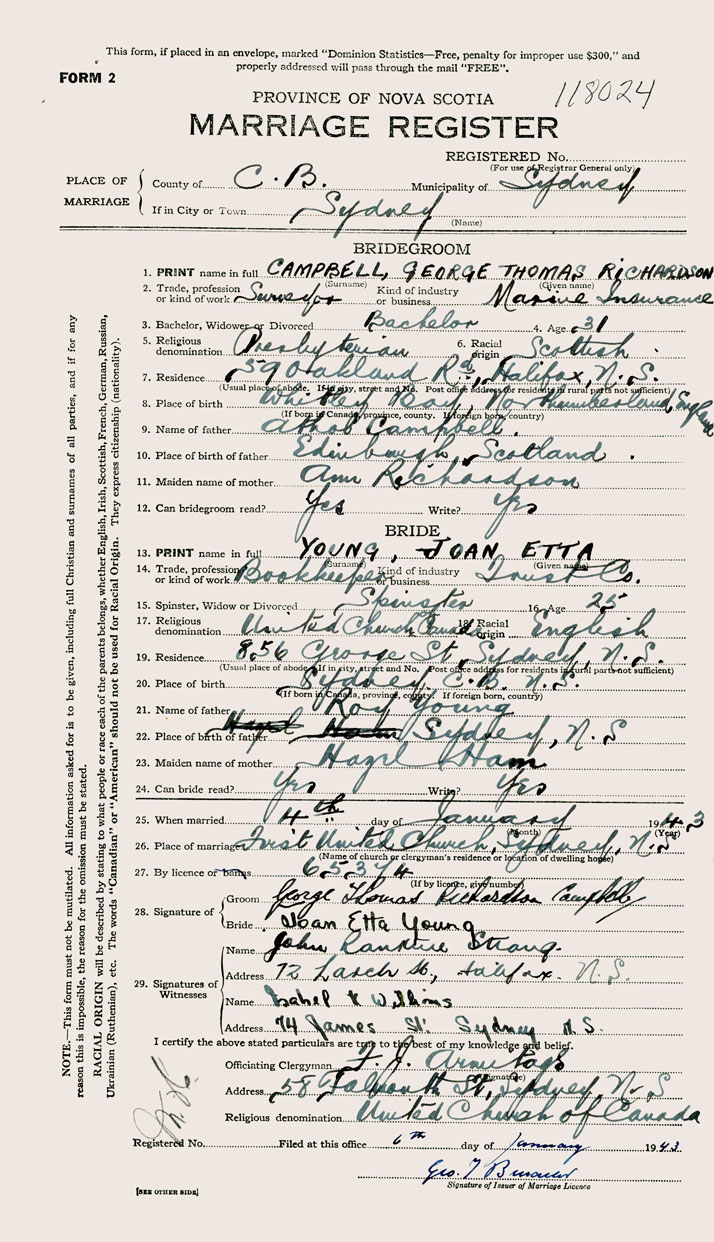 This form, if placed in an envelope, marked "Dominion Statistics—Free, penalty for improper use $300," and
properly addressed will pass through the mail "FREE".
FORM 2
118024
PROVINCE OF NOVA SCOTIA
MARRIAGE REGISTER
REGISTERED No.
(For use of Registrar General only)
PLACE OF MARRIAGE
County of C. B. Municipality of Sydney
If in City or Town Sydney
(Name)
BRIDEGROOM
1. PRINT name in full CAMPBELL, GEORGE THOMAS RICHARDSON
(Surname) (Given name)
2. Trade, profession or kind of work Surveyor Kind of industry or business Marine Insurance
3. Bachelor, Widower or Divorced Bachelor 4. Age 31
5. Religious denomination Presbyterian 6. Racial origin Scottish
7. Residence 59 Oakland Rd., Halifax, N.S.
(Usual place of abode. If in city, street and No. Post office address for residents in rural parts not sufficient)
8. Place of birth Whitley Bay, Northumberland, England
(If born in Canada, province, county. If foreign born, country)
9. Name of father Athol Campbell.
10. Place of birth of father Edinburgh, Scotland.
11. Maiden name of mother Ann Richardson
12. Can bridegroom read? Yes Write? Yes
BRIDE
13. PRINT name in full YOUNG, JOAN ETTA
(Surname) (Given name)
14. Trade, profession or kind of work Bookkeeper Kind of industry or business Trust Co.
15. Spinster, Widow or Divorced Spinster 16. Age 25
17. Religious denomination United Church Canada 18. Racial origin English
19. Residence 856 George St, Sydney, N.S.
(Usual place of abode. If in city, street and No. Post office address for residents in rural parts not sufficient)
20. Place of birth Sydney, C.B. N.S.
(If born in Canada, province, county. If foreign born, country)
21. Name of father Roy Young
22. Place of birth of father Hazel Ham Sydney, N.S
23. Maiden name of mother Hazel Ham
24. Can bride read? Yes Write? Yes
25. When married 4th day of January 1943
(Month) (Year)
26. Place of marriage First United Church, Sydney, N.S
(Name of church or clergyman's residence or location of dwelling house)
27. By licence or banns 65374
(If by licence, give number)
28. Signature of
Groom George Thomas Richardson Campbell
Bride Joan Etta Young
29. Signatures of Witnesses
Name John Rankine Strang.
Address 72 Larch St, Halifax. N.S.
Name Isabel Williams
Address 74 James St. Sydney N.S.
I certify the above stated particulars are true to the best of my knowledge and belief.
Officiating Clergyman F. J. Armitage
(Signature)
Address 58 Falmouth St, Sydney, N.S
Religious denomination United Church of Canada
Registered No. Filed at this office 6th day of January 1943
Geo. T
Signature of Issuer of Marriage Licence
[SEE OTHER SIDE]
NOTE.—This form must not be mutilated. All information asked for is to be given, including full Christian and surnames of all parties, and if for any
reason this is impossible, the reason for the omission must be stated.
RACIAL ORIGIN will be described by stating to what people or race each of the parents belongs, whether English, Irish, Scottish, French, German, Russian,
Ukrainian (Ruthenian), etc. The words "Canadian" or "American" should not be used for Racial Origin. They express citizenship (nationality).